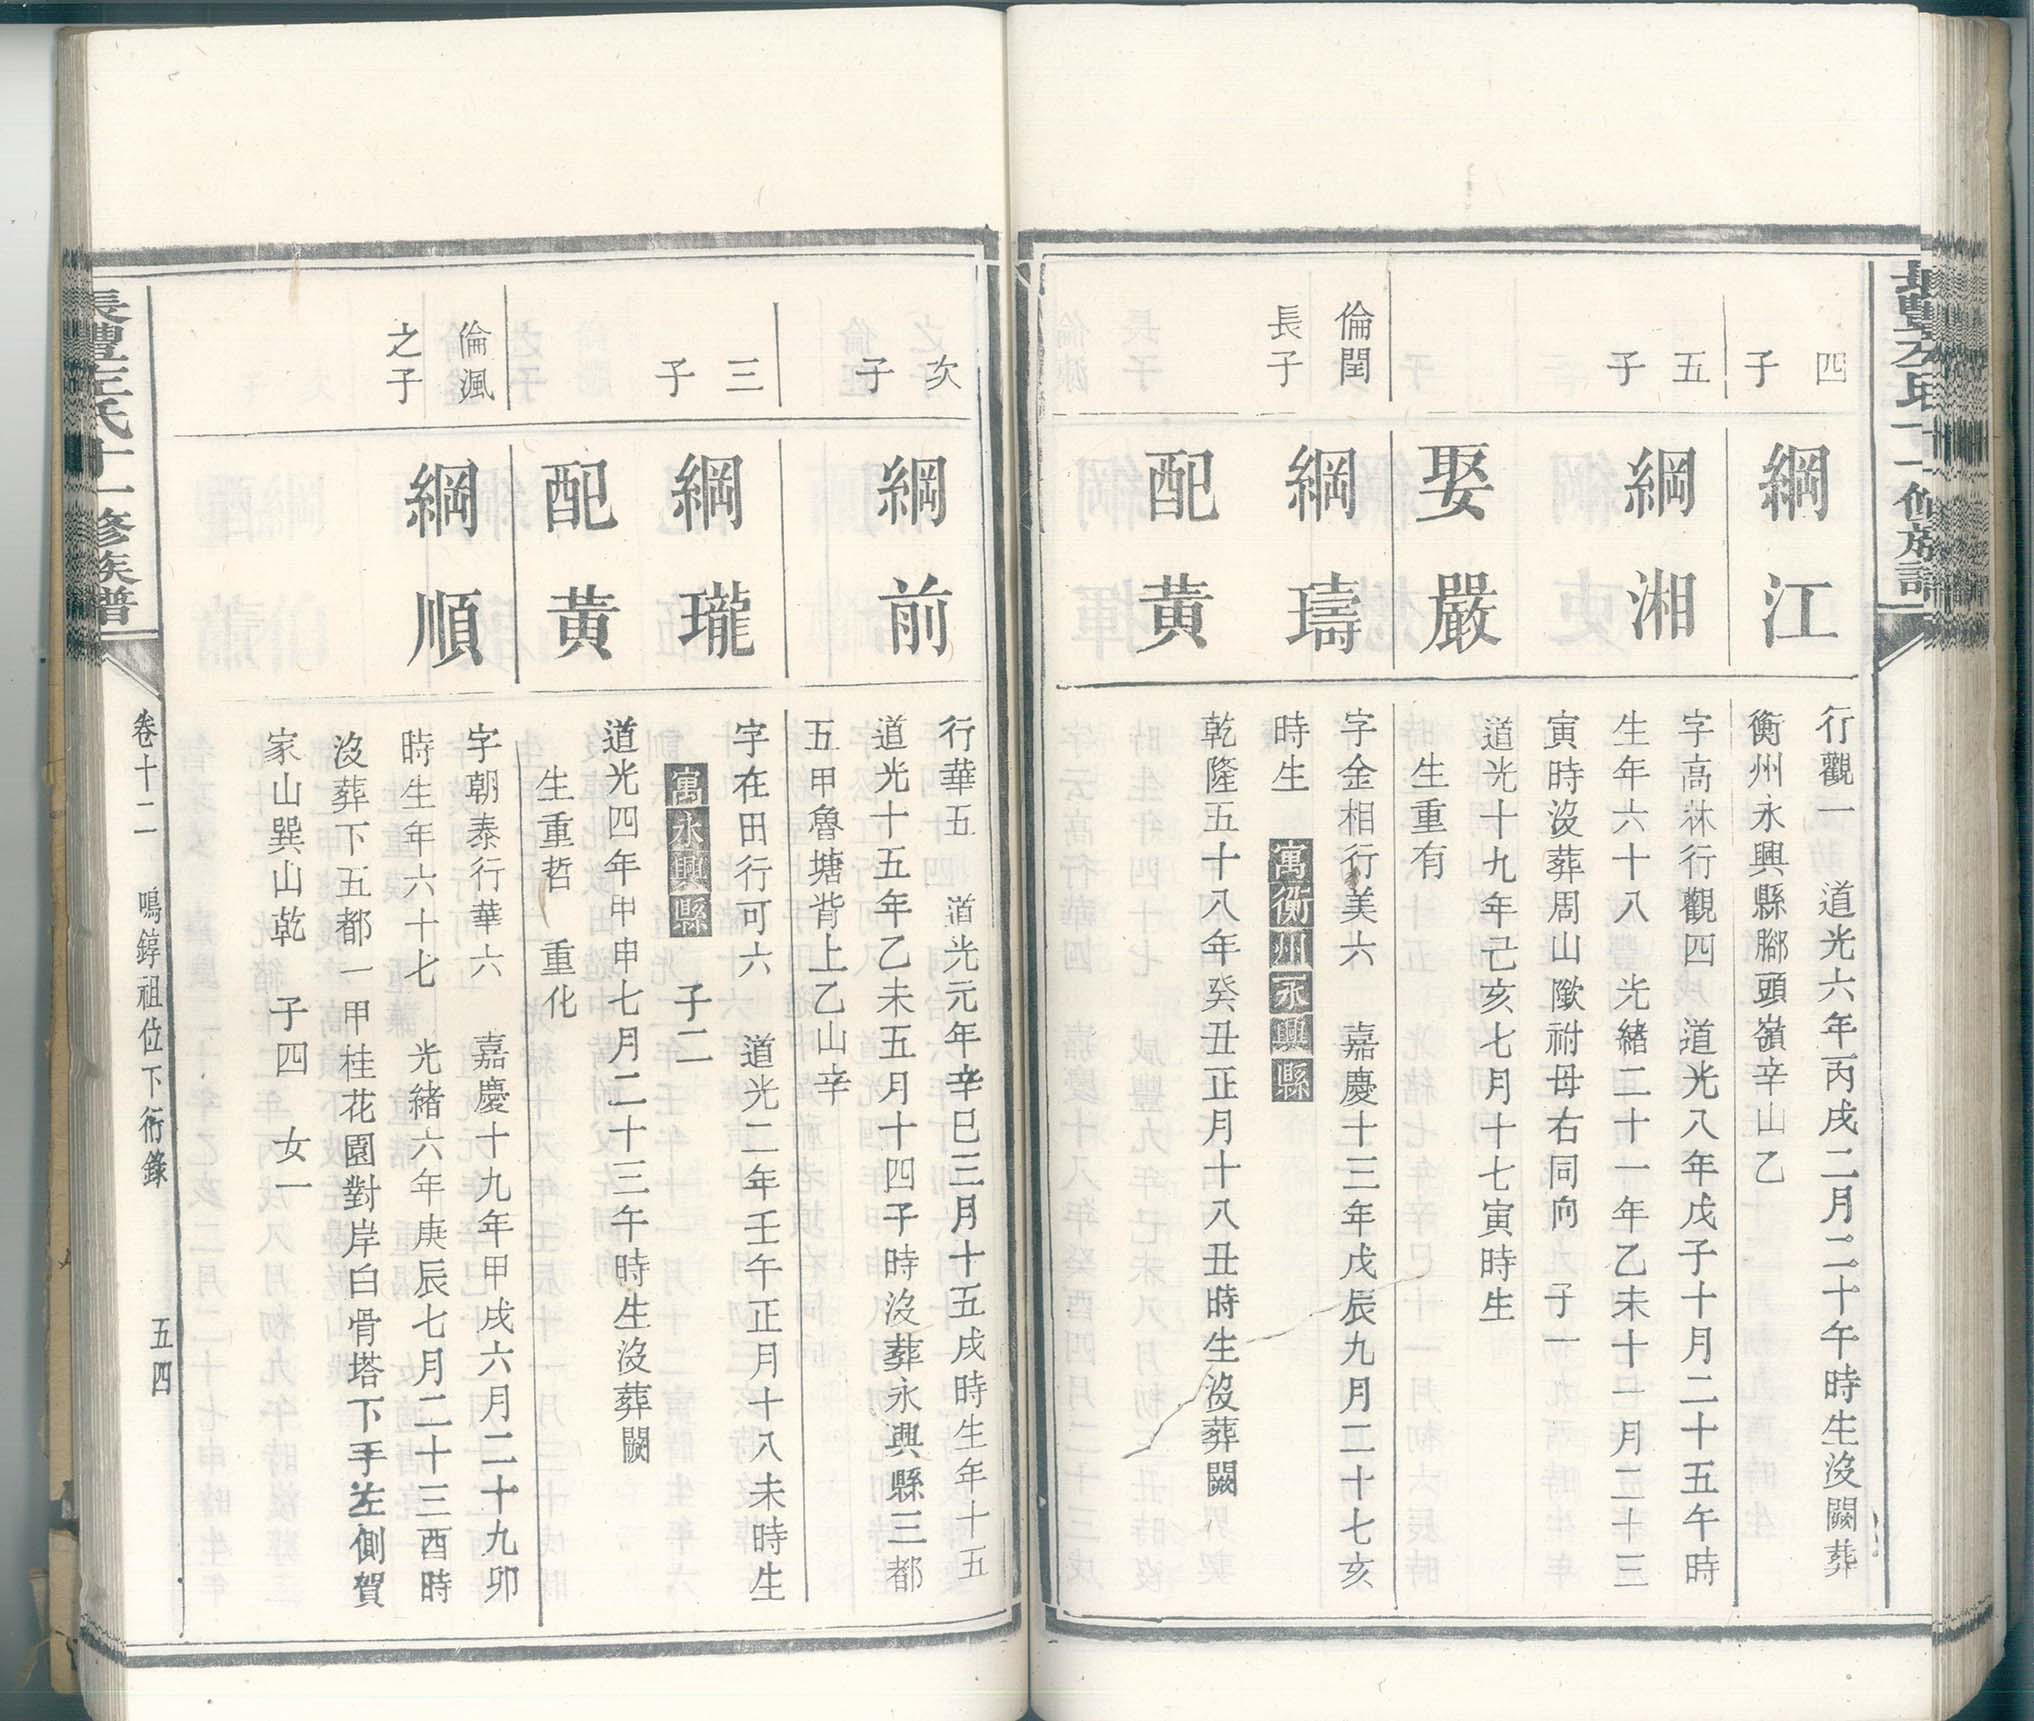 四子
綱江
行觀一　道光六年丙戌二月二十午時生沒闕葬
衡州永興縣鄉頭嶺辛山乙
五子
綱湘
字高林行觀四　道光八年戊子十月二十五午時
生年六十八　光緒二十一年乙未十一月二十三
寅時沒葬周山歐祔母右同向　子一
娶嚴
道光十九年己亥七月十七寅時生
生重有
倫閏長子
綱璹
字金相行美六　嘉慶十三年戊辰九月二十七亥
時生　寓衡州永興縣
配黃
乾隆五十八年癸丑正月十八丑時生沒葬闕
次子
綱前
行華五　道光元年辛巳三月十五戌時生年十五
道光十五年乙未五月十四子時沒葬永興縣三都
五甲魯塘背上乙山辛
三子
綱瓏
字在田行可六　道光二年壬午正月十八未時生
寓永興縣　子二
配黃
道光四年甲申七月二十三午時生沒葬闕
生重哲　重化
倫渢之子
綱順
字朝泰行華六　嘉慶十九年甲戌六月二十九卯
時生年六十七　光緒六年庚辰七月二十三酉時
沒葬下五都一甲桂花園對岸白骨塔下手左側賀
家山巽山乾　子四　女一
長豐左氏十一修族譜
卷十二　鳴錞祖位下衍錄　五四